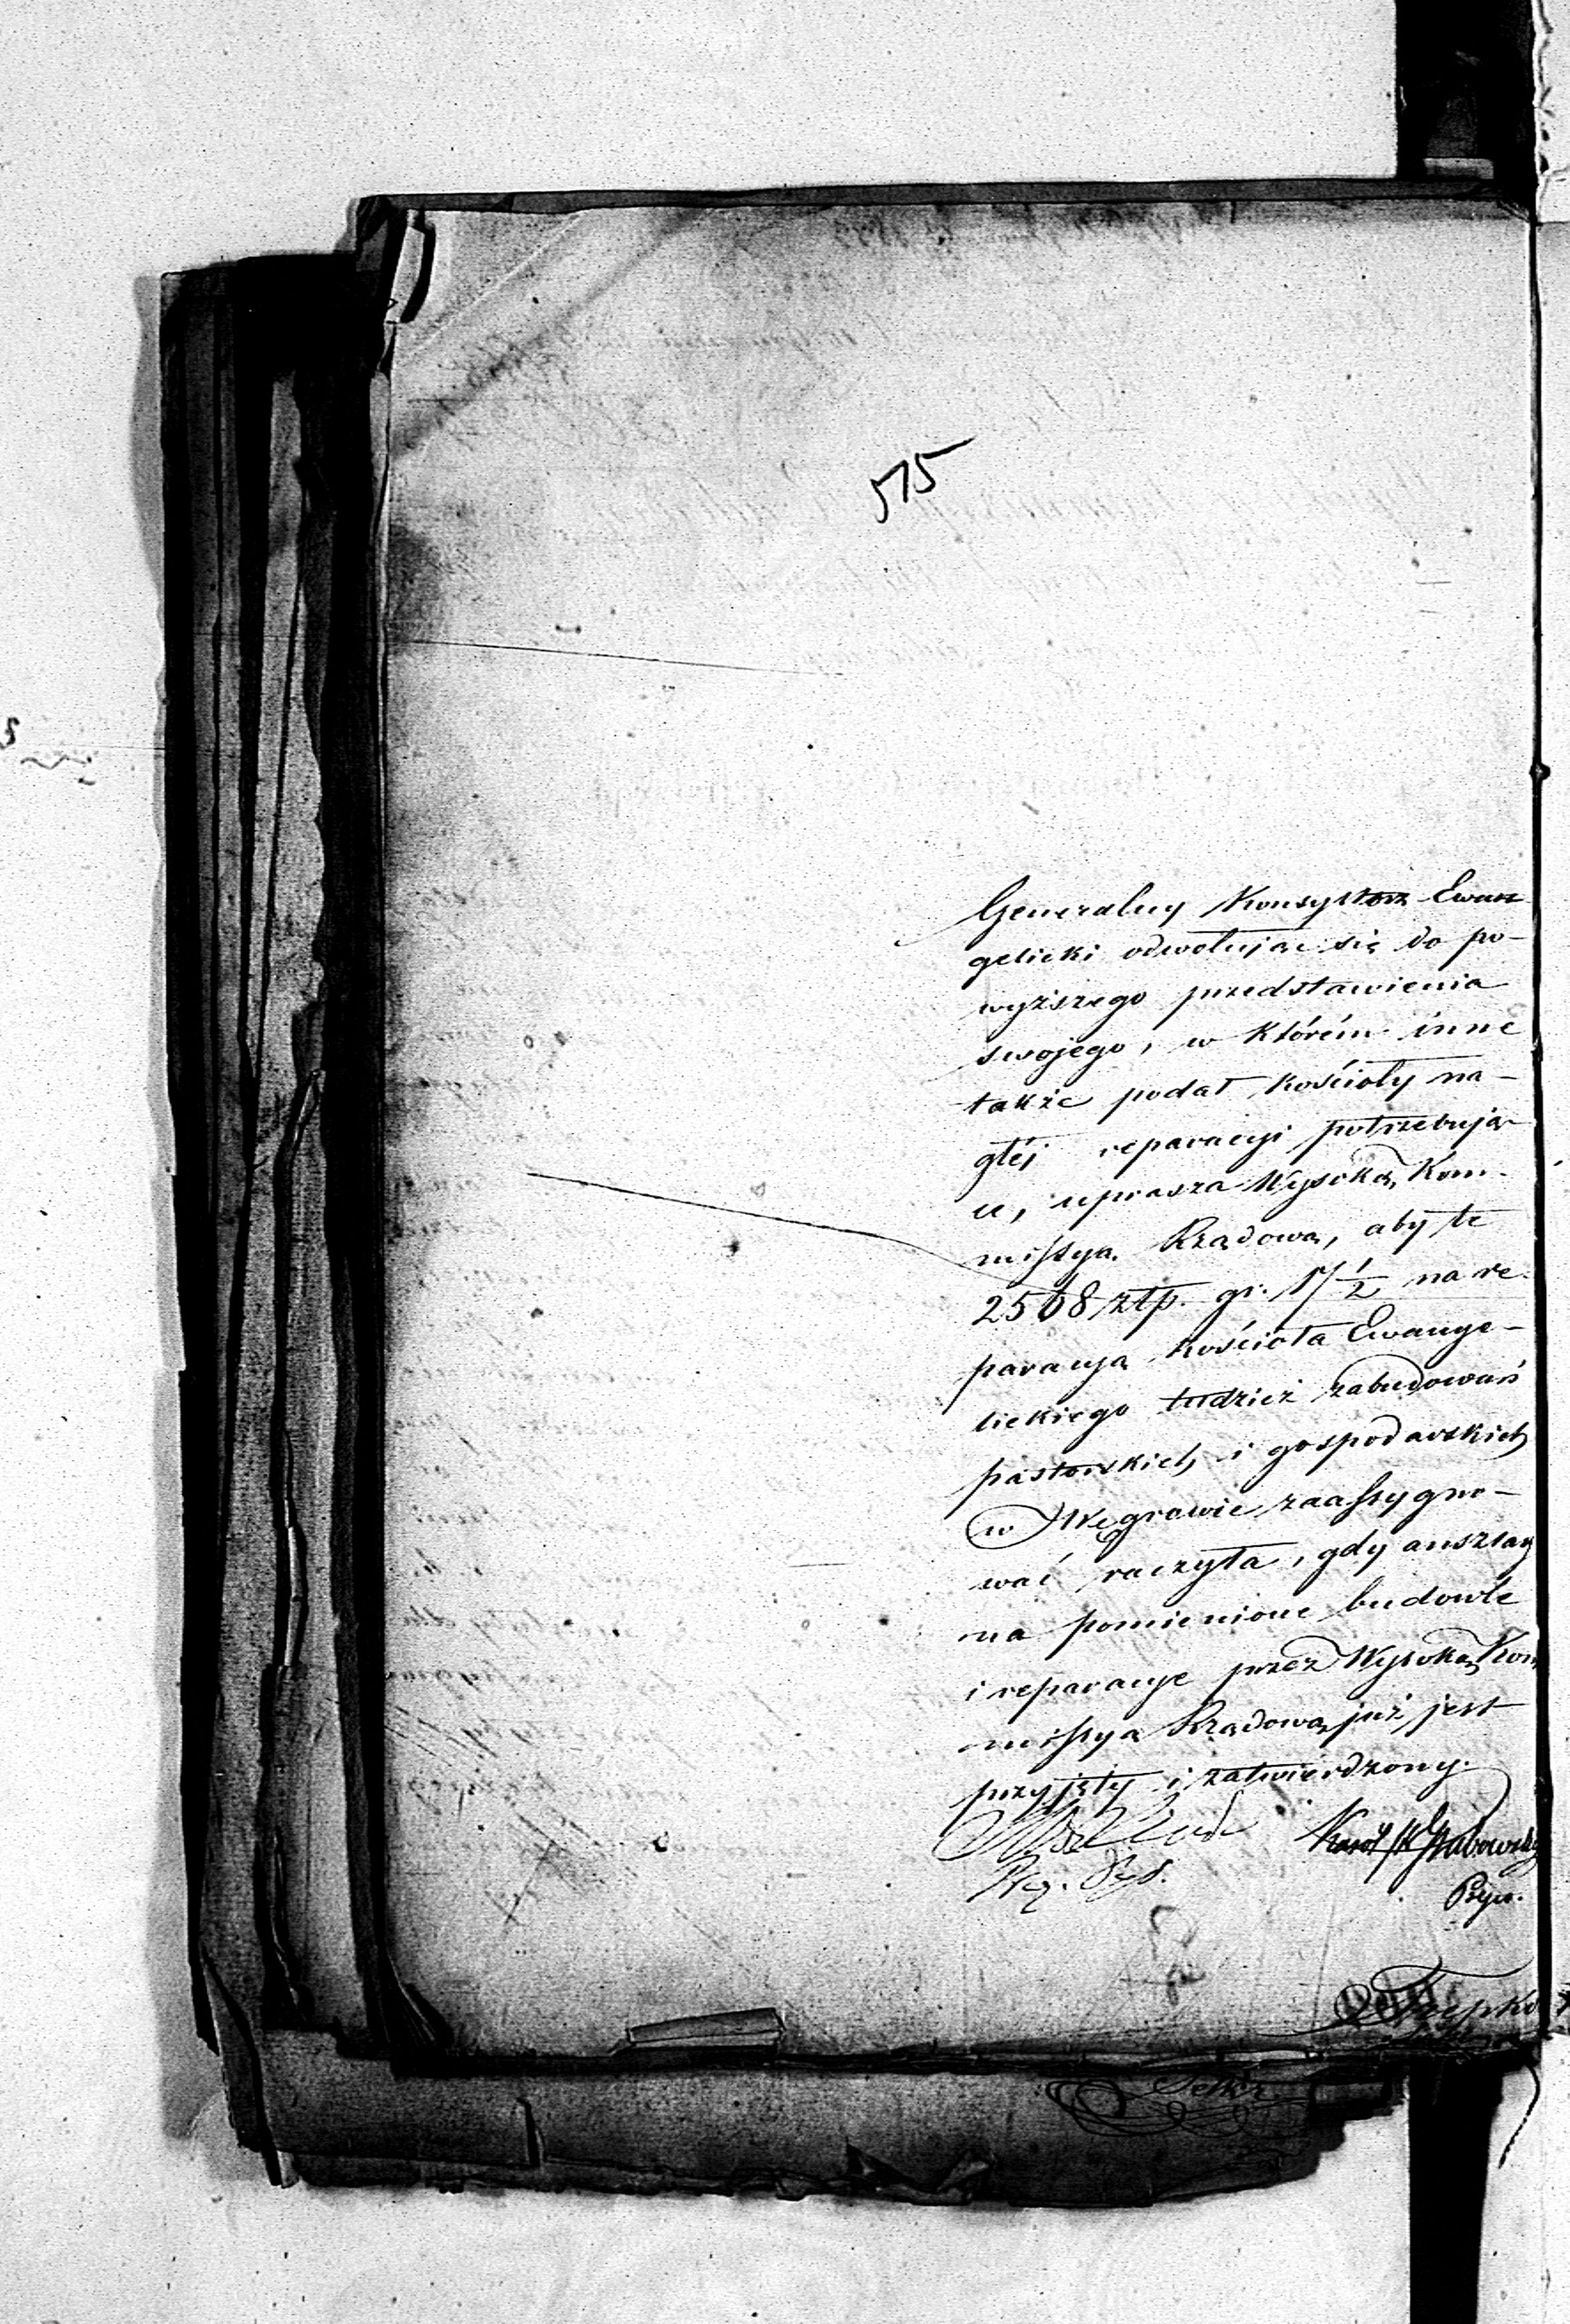 515
Generalny Konsystorz Ewan
gelicki odwołując się do po-
wyższego przedstawienia
swojego, w którém inne
także podał kościoły na-
głéj reparacyi potrzebują-
ce, uprasza Wysoką Kom-
missyą Rządową, aby te
2568 złp. gr. 17 1/2 na re-
paracyą kościoła Ewange-
lickiego tudzież zabudowań
pastorskich i gospodarskich
w Węgrowie zaassygno-
wać raczyła, gdy anszlag
na pomienione budowle
i reparacye przez Wysoką Kom
missyą Rządową już jest
przyjęty i zatwierdzony.
Karol Grabowski
Prez.
Sekr.